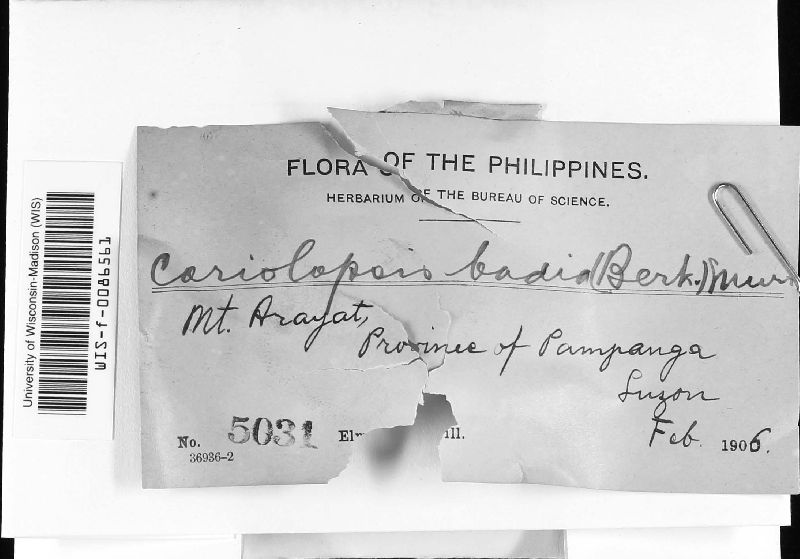 FLORA OF THE PHILIPPINES.
HERBARIUM OF THE BUREAU OF SCIENCE.
Coriolopsis badia (Berk.) Murr
Mt. Arayat,
Province of Pampanga
Luzon
Feb. 1906.
No. 5031 ill.
36936-2
University of Wisconsin-Madison (WIS)
WIS-f-0086561